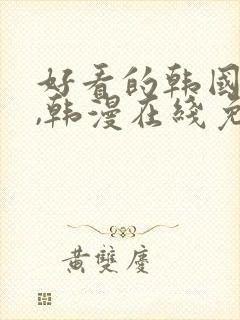 好看的韩国
,韩漫在线免
黄双庆